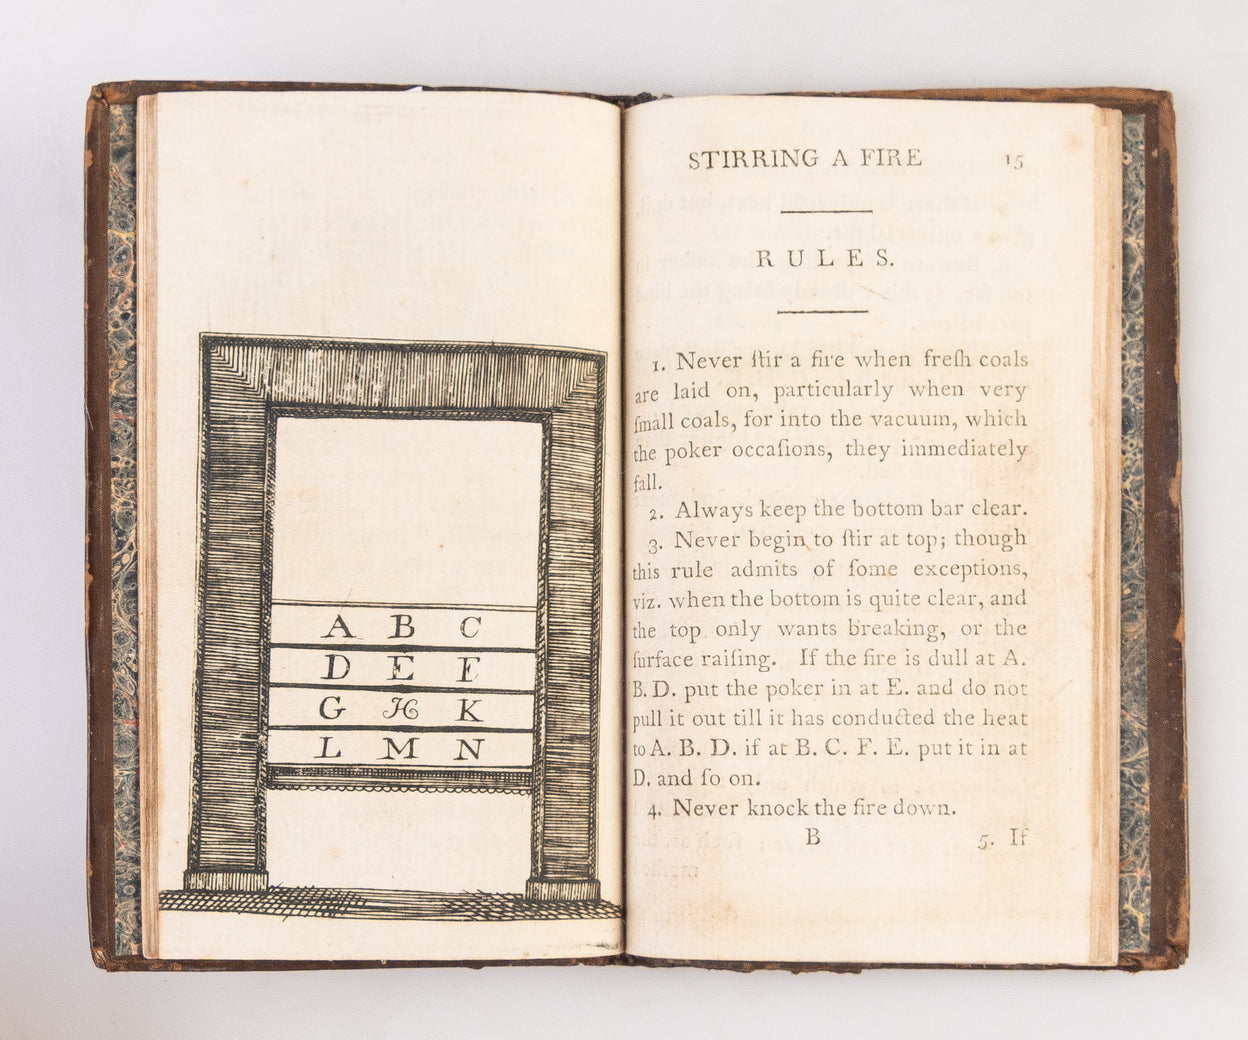 A B C
D E F
G H K
L M N
STIRRING A FIRE 15
RULES.
1. Never ſtir a fire when freſh coals
are laid on, particularly when very
ſmall coals, for into the vacuum, which
the poker occaſions, they immediately
fall.
2. Always keep the bottom bar clear.
3. Never begin to ſtir at top; though
this rule admits of ſome exceptions,
viz. when the bottom is quite clear, and
the top only wants breaking, or the
ſurface raiſing. If the fire is dull at A.
B. D. put the poker in at E. and do not
pull it out till it has conducted the heat
to A. B. D. if at B. C. F. E. put it in at
D. and ſo on.
4. Never knock the fire down.
B 5. If